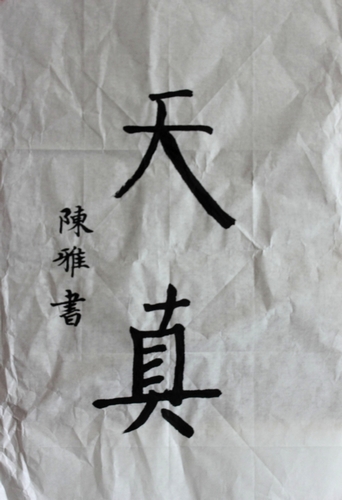 天真
陳雅書